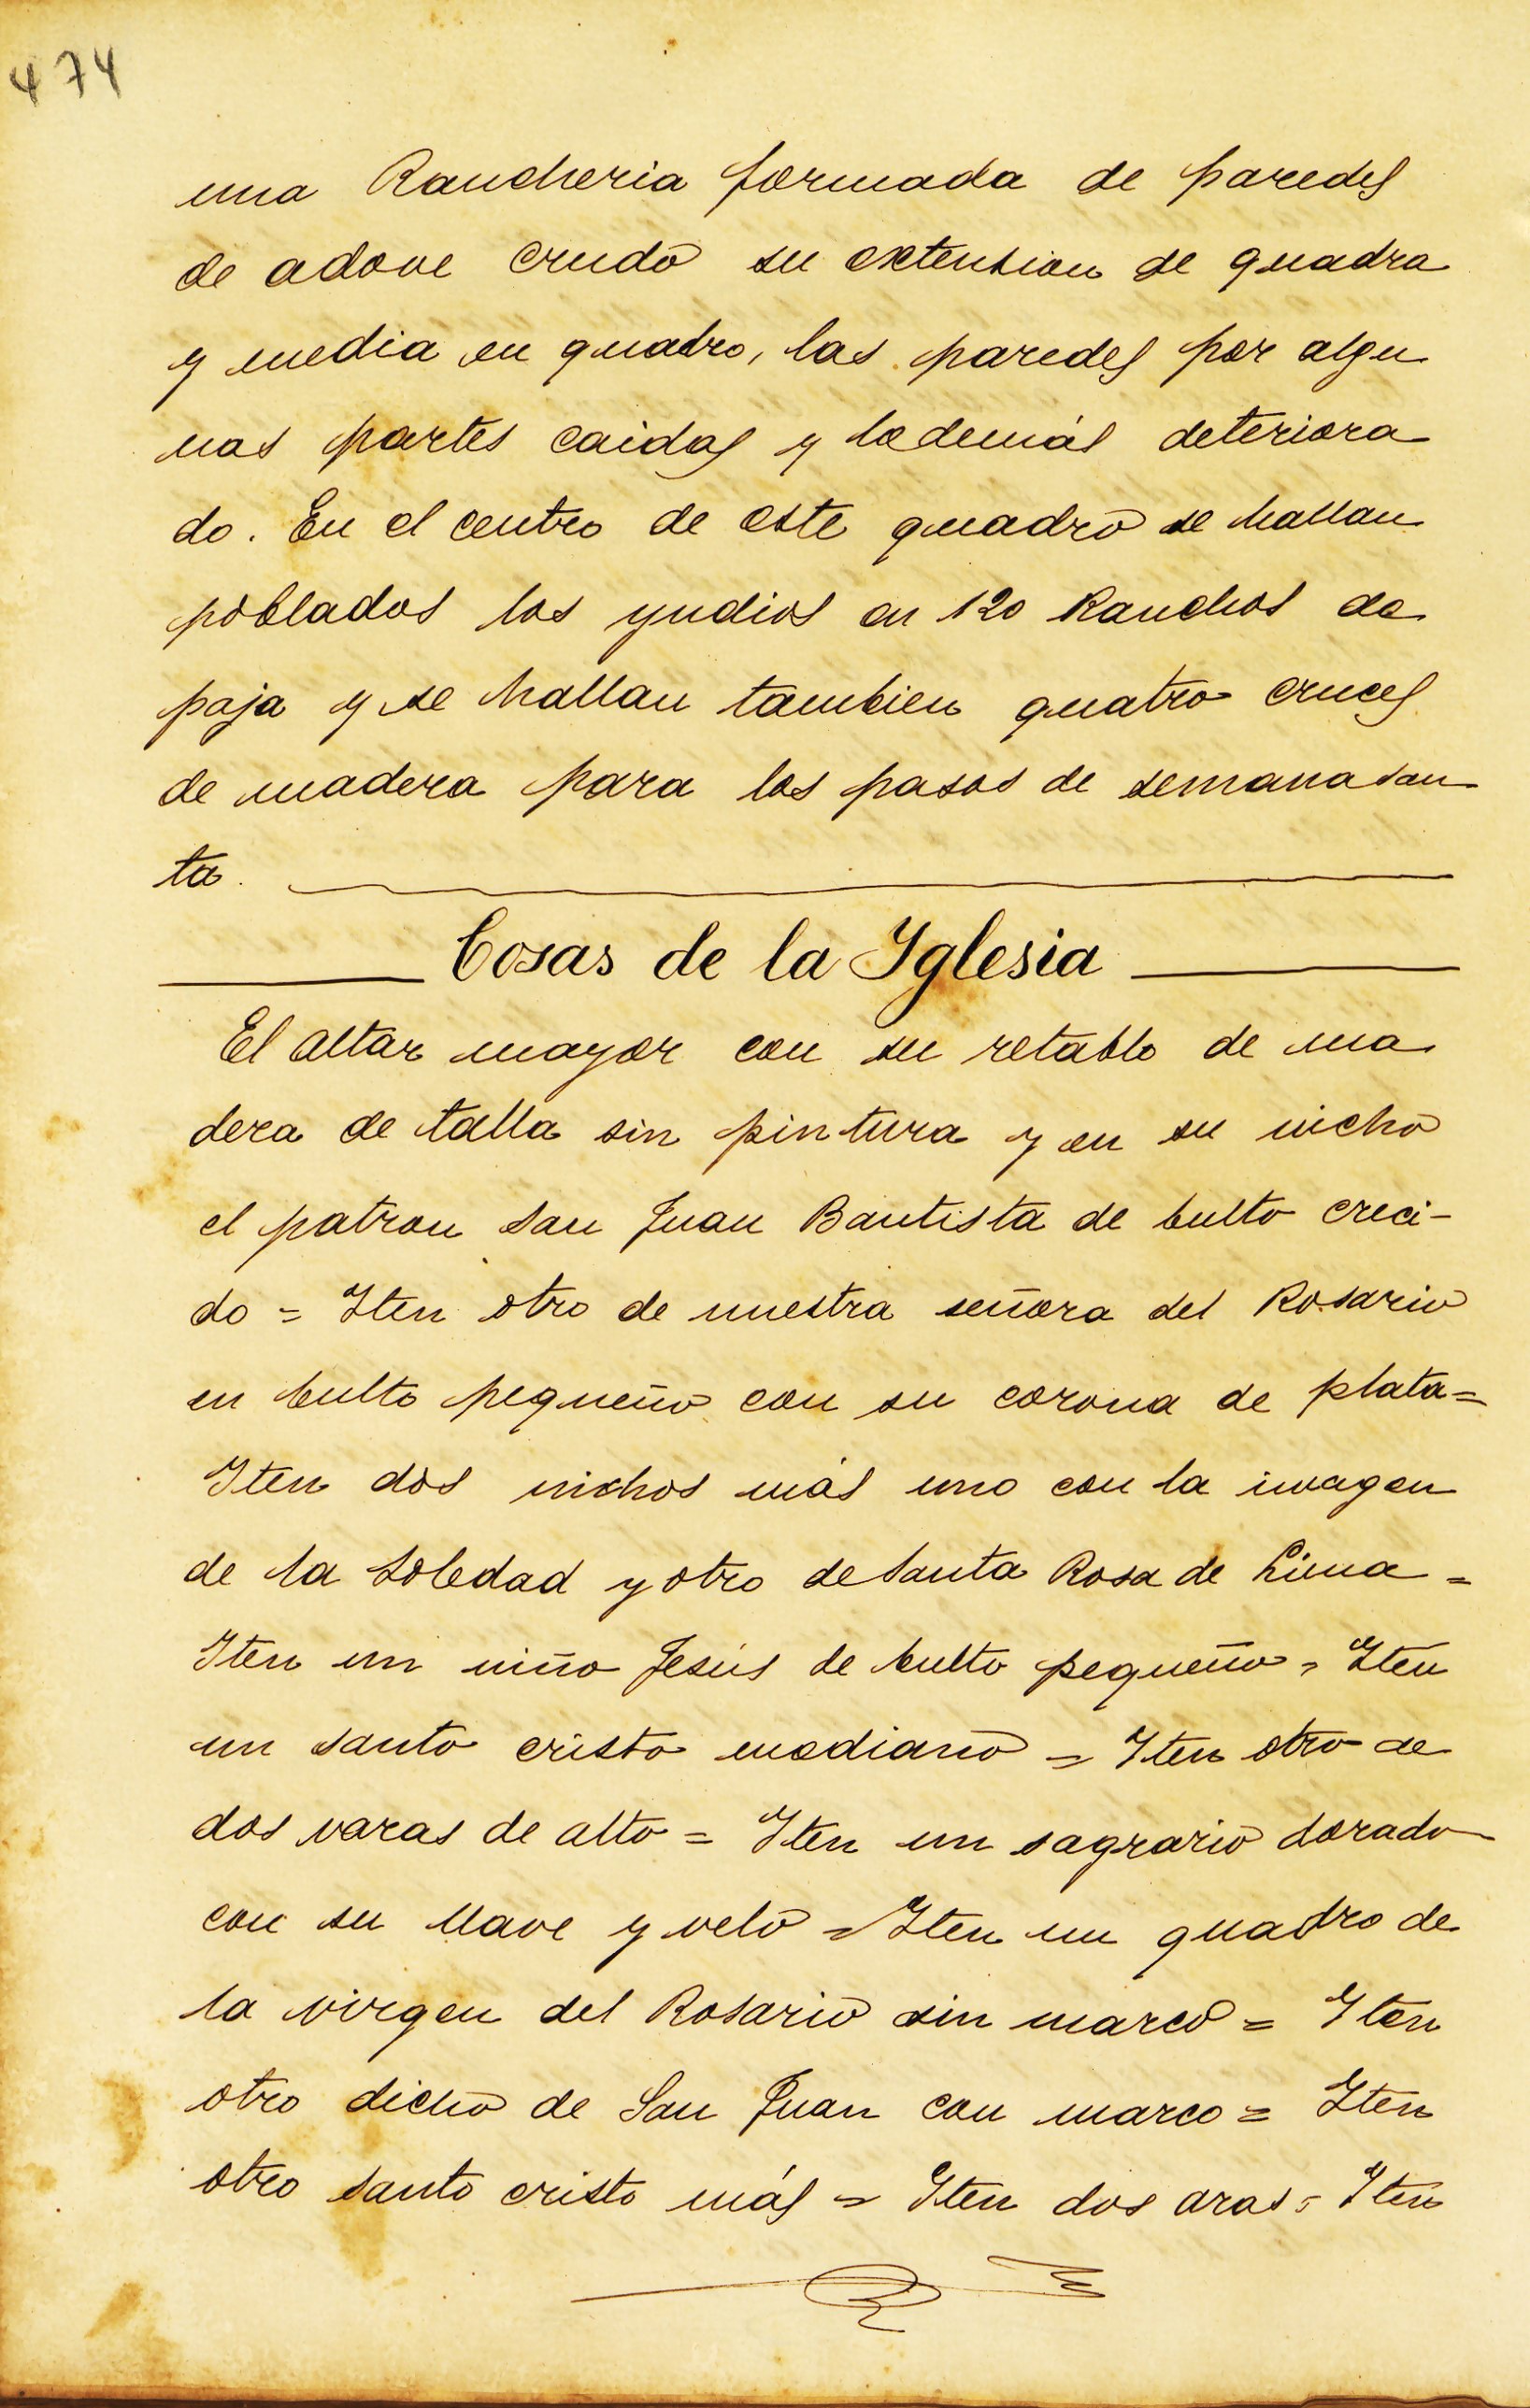 474
una Rancheria formada de paredes
de adove crudo su extension de quadra
y media en quadro, las paredes por algu
nas partes caidas y lodemás deteriora
do. En el centro de este quadro se hallan
poblados los yndios en 120 Ranchos de
paja y se hallan tambien quatro cruces
de madera para los pasos de semana san
ta.
Cosas de la Yglesia
El altar mayor con su retablo de ma
dera de talla sin pintura y en su nicho
el patron san Juan Bautista de bulto creci-
do = Iten otro de nuestra señora del Rosario
en bulto pequeño con su corona de plata=
Iten dos nichos más uno con la imagen
de la Soledad y otro de Santa Rosa de Lima =
Iten un niño Jesús de bulto pequeño = Iten
un santo cristo mediano = Iten otro de
dos varas de alto = Iten un sagrario dorado
con su llave y velo = Iten un quadro de
la virgen del Rosario sin marco = Iten
otro dicho de San Juan con marco = Iten
otro santo cristo más = Iten dos aras = Iten